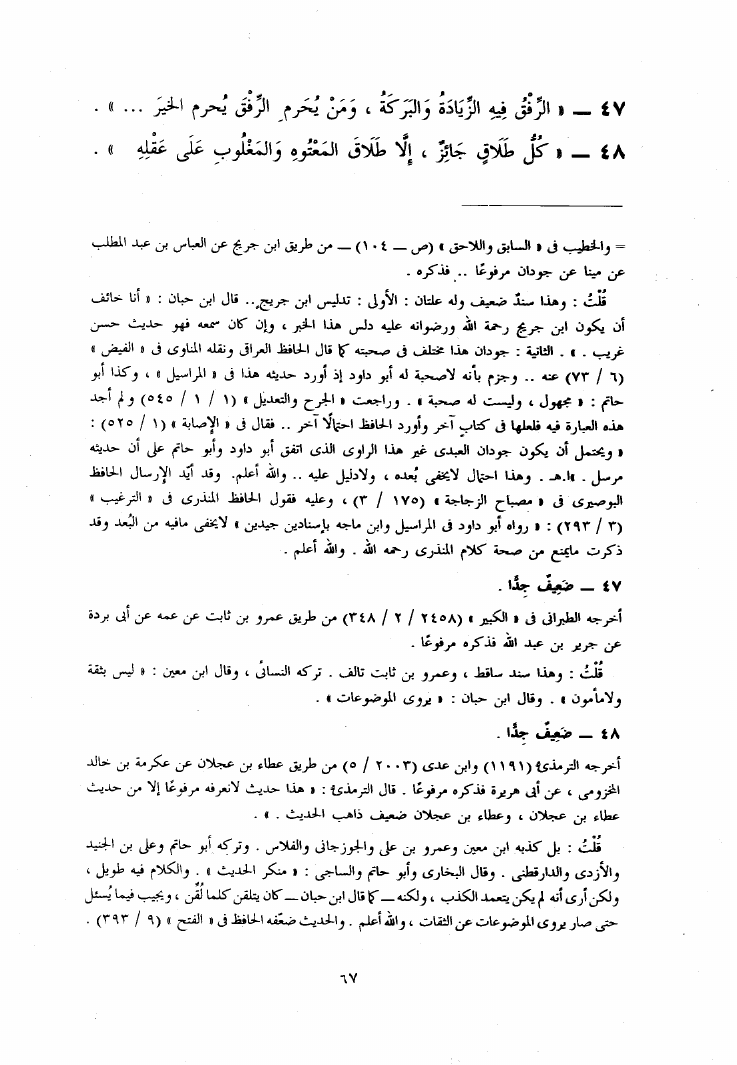 ٤٧ — « الرِّفْقُ فِيهِ الزِّيَادَةُ وَالبَرَكَةُ ، وَمَنْ يُحَرم ِ الرِّفْقَ يُحرم الخيرَ ... » .
٤٨ — « كُلُّ طَلَاقٍ جَائِزٌ ، إِلَّا طَلَاقَ المَعْتُوهِ وَالمَغْلُوبِ عَلَى عَقْلِهِ » .
= والخطيب فى « السابق واللاحق » (ص — ١٠٤) — من طريق ابن جريج عن العباس بن عبد المطلب
عن مينا عن جودان مرفوعًا .. فذكره .
قُلْتُ : وهذا سندٌ ضعيف وله علتان : الأولى : تدليس ابن جريج.. قال ابن حبان : « أنا خائف
أن يكون ابن جريج رحمة الله ورضوانه عليه دلس هذا الخبر ، وإن كان سمعه فهو حديث حسن
غريب . » . الثانية : جودان هذا مختلف فى صحبته كما قال الحافظ العراق ونقله المناوى فى « الفيض »
(٦ / ٧٣) عنه .. وجزم بأنه لاصحبة له أبو داود إذ أورد حديثه هذا فى « المراسيل » ، وكذا أبو
حاتم : « مجهول ، وليست له صحبة » . وراجعت « الجرح والتعديل » (١ / ١ / ٥٤٥) ولم أجد
هذه العبارة فيه فلعلها فى كتاب آخر وأورد الحافظ احتمالًا آخر .. فقال فى « الإصابة » (١ / ٥٢٥) :
« ويحتمل أن يكون جودان العبدى غير هذا الراوى الذى اتفق أبو داود وأبو حاتم على أن حديثه
مرسل . »ا.هـ. وهذا احتمال لايخفى بُعده ، ولادليل عليه .. والله أعلم. وقد أيّد الإرسال الحافظ
البوصيرى فى « مصباح الزجاجة » (١٧٥ / ٣) ، وعليه فقول الحافظ المنذرى فى « الترغيب »
(٣ / ٢٩٣) : « رواه أبو داود فى المراسيل وابن ماجه بإسنادين جيدين » لايخفى مافيه من البُعد وقد
ذكرت مايمنع من صحة كلام المنذرى رحمه الله . والله أعلم .
٤٧ — ضَعِيفٌ جِدًّا .
أخرجه الطبرانى فى « الكبير » (٢٤٥٨ / ٢ / ٣٤٨) من طريق عمرو بن ثابت عن عمه عن أبى بردة
عن جرير بن عبد الله فذكره مرفوعًا .
قُلْتُ : وهذا سند ساقط ، وعمرو بن ثابت تالف . تركه النسائى ، وقال ابن معين : « ليس بثقة
ولامأمون » . وقال ابن حبان : « يروى الموضوعات » .
٤٨ — ضَعِيفٌ جِدًّا .
أخرجه الترمذىُّ (١١٩١) وابن عدى (٢٠٠٣ / ٥) من طريق عطاء بن عجلان عن عكرمة بن خالد
المخزومى ، عن أبى هريرة فذكره مرفوعًا . قال الترمذىُّ : « هذا حديث لانعرفه مرفوعًا إلا من حديث
عطاء بن عجلان ، وعطاء بن عجلان ضعيف ذاهب الحديث . » .
قُلْتُ : بل كذبه ابن معين وعمرو بن على والجوزجانى والفلاس . وتركه أبو حاتم وعلى بن الجنيد
والأزدى والدارقطنى . وقال البخارى وأبو حاتم والساجى : « منكر الحديث » . والكلام فيه طويل ،
ولكن أرى أنه لم يكن يتعمد الكذب ، ولكنه — كما قال ابن حبان — كان يتلقن كلما لُقّن ، ويجيب فيما يُسئل
حتى صار يروى الموضوعات عن الثقات ، والله أعلم . والحديث ضعّفه الحافظ فى « الفتح » (٩ / ٣٩٣) .
٦٧